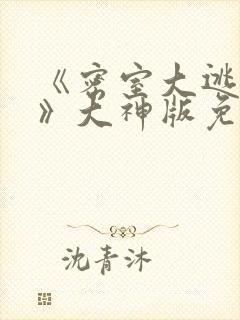 《密室大逃
》大神版免
沈青沐